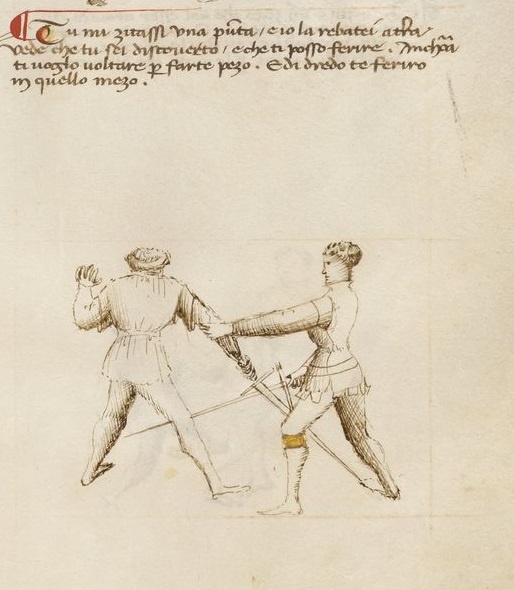 ¶ Tu mi zitassi una pũta / e io la rebatei a tr̃a /
vede che tu sei discouerto / e che ti posso ferire . Anchora
ti uoglo uoltare ꝑ farte pezo . E di dredo te feriro
in quello mezo .